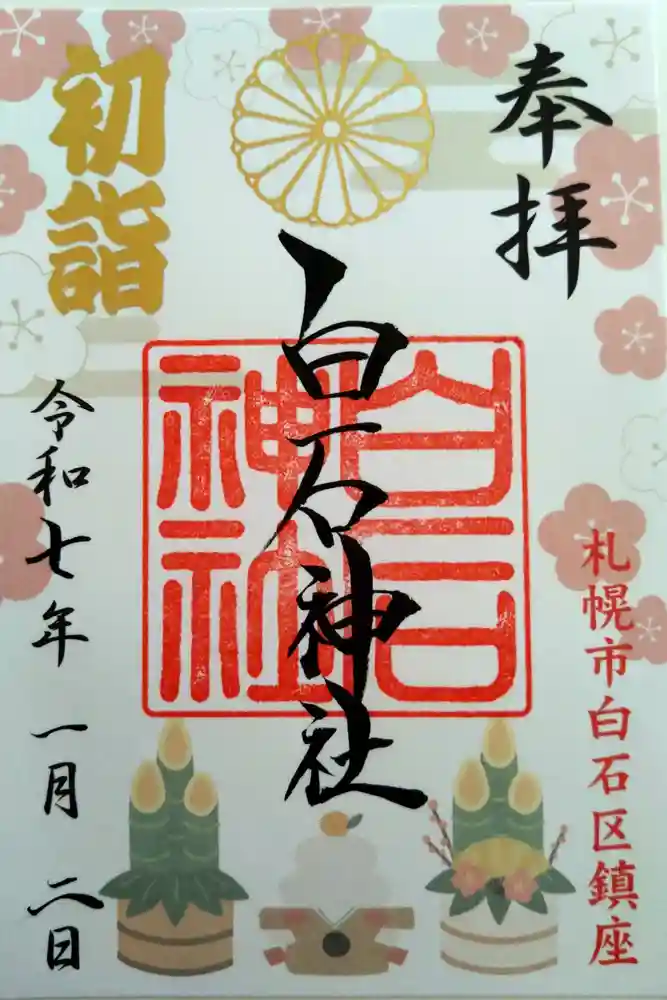 奉拝
札幌市白石区鎮座
白石神社
白石神社
初詣
令和七年 一月 二日